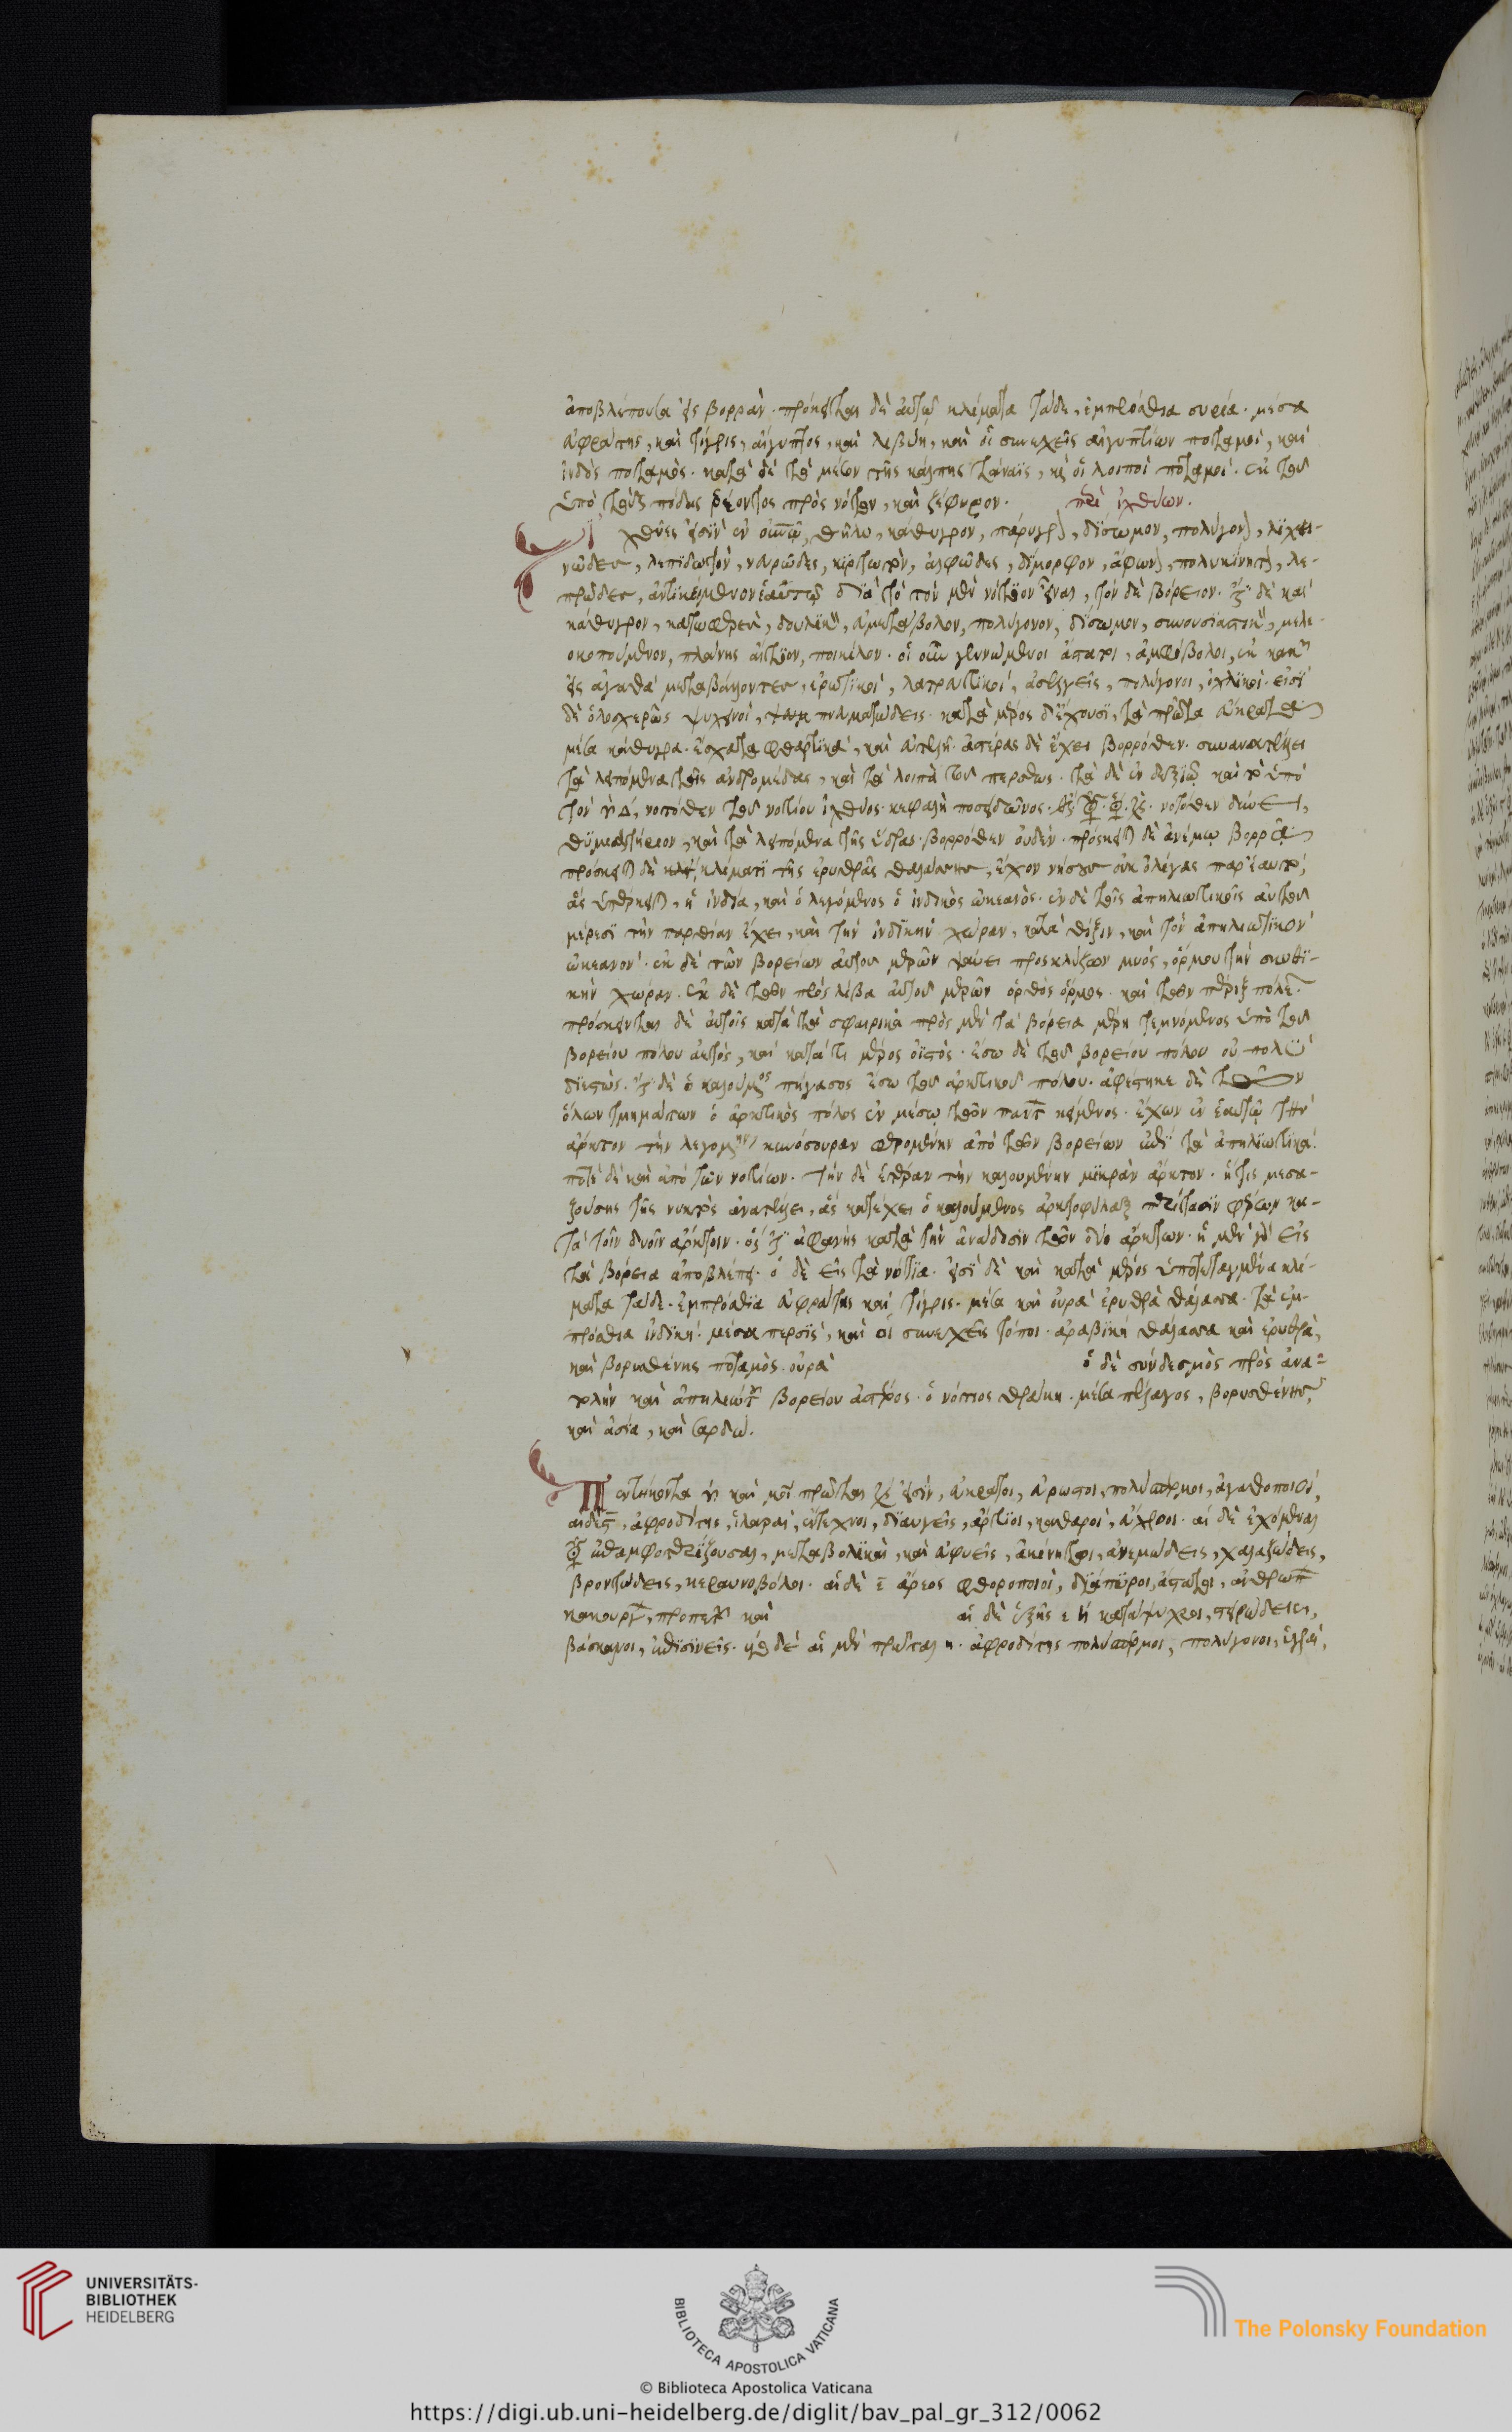 ἀποβλέπουσα εἰς βορρὰν. πρόσκειται δὲ αὐτῷ κλίματα τάδε. ἐμπρόσθια συρία. μέσα
εὐφράτης, καὶ τίγρις, αἴγυπτος, καὶ λιβύη, καὶ οἱ συνεχεῖς αἰγυπτίων ποταμοὶ, καὶ
ἰνδὸς ποταμὸς. κατὰ δὲ τὰ μέσον τῆς κάλπης τάναϊς, καὶ οἱ λοιποὶ ποταμοί. ἐκ τοῦ
ὑπὸ τοὺς πόδας ῥέοντος πρὸς νότον, καὶ ζέφυρον. περὶ ἰχθύων.
Ἰχθύες εἰσὶν ἐν οὐρανῷ, θῆλυ, κάθυγρον, πάρυγρον, δίσωμον, πολύγονον, λειχη-
νῶδες, λεπιδωτὸν, νευρῶδες, κυρτωτὸν, ἀλφῶδες, δίμορφον, ἄφωνον, πολυκίνητον, λε-
πρῶδες, ἀντικείμενον ἑαυτῷ διὰ τὸ τὸν μὲν νότιον εἶναι, τὸν δὲ βόρειον. ἔστι δὲ καὶ
κάθυγρον, κατωφερὲς, δουλικὸν, εὐμετάβολον, πολύγονον, δίσωμον, συνουσιαστικὸν, μελε-
οκοπούμενον, πλάνης αἴτιον, ποικίλον. οἱ οὖν γεννώμενοι ἄστατοι, ἀμφίβολοι, ἐκ κακῶν
εἰς ἀγαθὰ μεταβάλλοντες, ἐρωτικοὶ, λατρευτικοὶ, ἀσελγεῖς, πολύγονοι, ὀχλικοί. εἰσὶ
δὲ ὁλοσχερῶς ψυχεινοὶ, πνευματώδεις. κατὰ μέρος δὲ ἔχουσι, τὰ πρῶτα εὔκρατα
μέσα κάθυγρα. ἔσχατα φθαρτικὰ, καὶ εὐτελῆ. ἀστέρας δὲ ἔχει βορρόθεν. συνανατέλλει
τὰ λειπόμενα τῆς ἀνδρομέδας, καὶ τὰ λοιπὰ τοῦ περσέως. τὰ δὲ ἐν δεξιῷ καὶ τὸ ὑπὸ
τὸν Δ, νοτόθεν τοῦ νοτίου ἰχθύος. κεφαλὴ ποσειδῶνος. νοτόθεν δύνει,
θυμιατήριον, καὶ τὰ λειπόμενα τῆς ὕδρας. βορρόθεν οὐδέν. πρόσκειται δὲ ἀνέμῳ βορρᾷ
πρόσκειται δὲ κλίματι τῆς ἐρυθρᾶς θαλάσσης, ἔχον νήσους οὐκ ὀλίγας παρ' ἑαυτὸ,
αἷς ὑπέρκειται, ἡ ἰνδία, καὶ ὁ λεγόμενος ὁ ἰνδικὸς ὠκεανὸς. ἐν δὲ τοῖς ἀπηλιωτικοῖς αὐτοῦ
μέρεσι τὴν παρθίαν ἔχει, καὶ τὴν ἰνδικὴν χώραν, κατὰ θίξιν, καὶ τὸν ἀπηλιωτικὸν
ὠκεανὸν. ἐκ δὲ τῶν βορείων αὐτοῦ μερῶν ψαύει προσκλύζων μυὸς, ὅρμου τὴν σκυθι-
κὴν χώραν. ἐκ δὲ τῶν πρὸς λίβα αὐτοῦ μερῶν ὀρθὸς ὅρμος. καὶ τῶν πέριξ πόλεων.
πρόσκεινται δὲ αὐτοῖς κατὰ τὰ σφαιρικὰ πρὸς μὲν τὰ βόρεια μέρη τεμνόμενος ὑπὸ τοῦ
βορείου πόλου ἀετὸς, καὶ κατά τι μέρος ὀϊστὸς. ἔσω δὲ τοῦ βορείου πόλου οὐ πολὺ
διεστὼς. ἔστι δὲ ὁ καλούμενος πήγασος ἔσω τοῦ ἀρκτικοῦ πόλου. ἀφέστηκε δὲ τῶν
ὅλων τμημάτων ὁ ἀρκτικὸς πόλος ἐν μέσῳ τῶν πάντων κείμενος. ἔχων ἐν ἑαυτῷ τὴν
ἄρκτον τὴν λεγομένην κυνόσουραν φερομένην ἀπὸ τῶν βορείων ἐπὶ τὰ ἀπηλιωτικὰ.
ποτὲ δὲ καὶ ἀπὸ τῶν νοτίων. τὴν δὲ ἑτέραν τὴν καλουμένην μικρὰν ἄρκτον. ἥτις μεσα-
ζούσης τῆς νυκτὸς ἀνατέλλει, ἃς κατέχει ὁ καλούμενος ἀρκτοφύλαξ περίτασιν φέρων κα-
τὰ τοῖν δυοῖν ἄρκτοιν. ὅς ἐστι ἀφανὴς κατὰ τὴν ἀνάδοσιν τῶν δύο ἄρκτων. ἡ μὲν γὰρ εἰς
τὰ βόρεια ἀποβλέπει. ὁ δὲ εἰς τὰ νότια. εἰσὶ δὲ καὶ κατὰ μέρος ὑποτεταγμένα κλί-
ματα τάδε. ἐμπρόσθια εὐφράτης καὶ τίγρις. μέσα καὶ οὐρὰ ἐρυθρὰ θάλασσα. τὰ ἐμ-
πρόσθια ἰνδικὴ. μέσα περσὶς, καὶ οἱ συνεχεῖς τόποι. ἀραβικὴ θάλασσα καὶ ἐρυθρὰ,
καὶ βορυσθένης ποταμὸς. οὐρὰ ὁ δὲ σύνδεσμὸς πρὸς ἀνα-
τολὴν καὶ ἀπηλιώτην βορείου ἀστέρος. ὁ νότιος θρᾴκη. μέσα πέλαγος, βορυσθένης,
καὶ ἀσία, καὶ σαρδώ.
Πεντήκοντα καὶ πρῶται εἰσὶν, εὔκρατοι, εὔρωστοι, πολύσπερμοι, ἀγαθοποιοί,
αἱ δὲ ἀφροδίτης, ἱλαραὶ, εὔτεχνοι, διαυγεῖς, ἄρτιοι, καθαροὶ, εὔχροοι. αἱ δὲ ἐχόμεναι
ἐπαμφοτερίζουσαι, μεταβολικαὶ, καὶ εὐφυεῖς, εὐκίνητοι, ἀνεμώδεις, χαλαζώδεις,
βροντώδεις, κεραυνοβόλοι. αἱ δὲ ἄρεος φθοροποιοὶ, διάπυροι, ἄστατοι,
κακουργ, προπετ καὶ αἱ δὲ ἑξῆς κατάψυχροι,
βάσκανοι, ἐπισινεῖς. δὲ αἱ μὲν πρῶται η. ἀφροδίτης πολύσπερμοι, πολύγονοι,
© Biblioteca Apostolica Vaticana
https://digi.ub.uni-heidelberg.de/diglit/bav_pal_gr_312/0062
UNIVERSITÄTS-
BIBLIOTHEK
HEIDELBERG
BIBLIOTECA APOSTOLICA VATICANA
The Polonsky Foundation